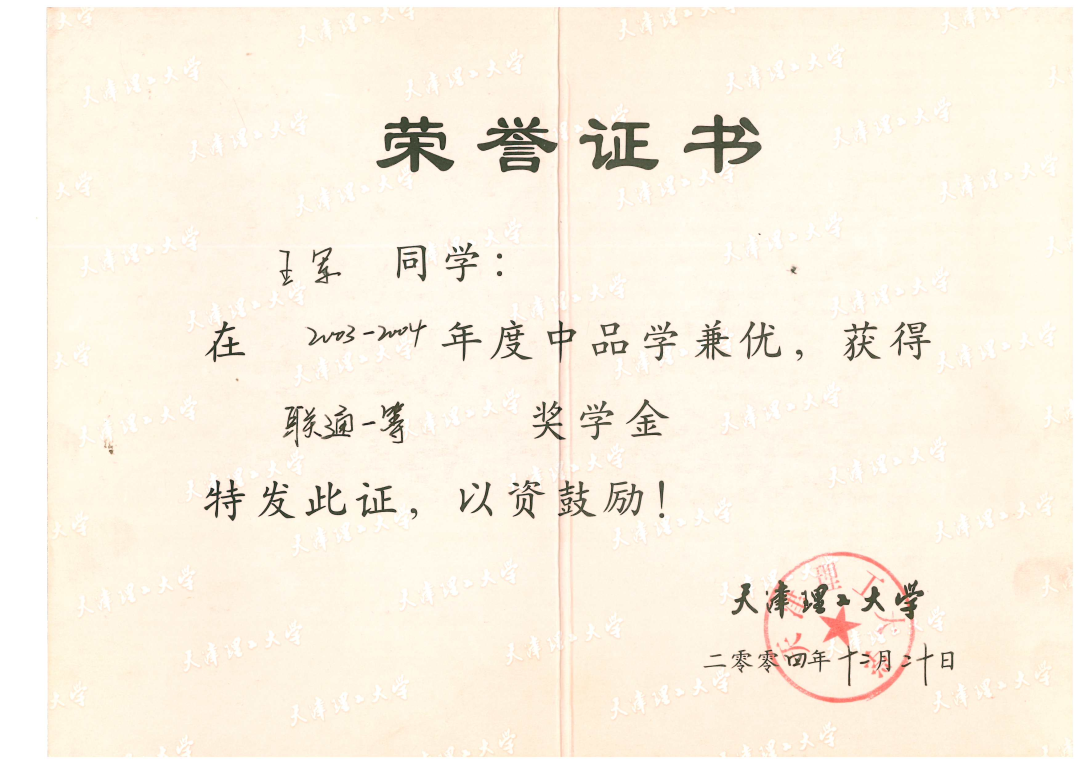 荣誉证书
王军 同学：
在 2003-2004 年度中品学兼优，获得
联通一等 奖学金
特发此证，以资鼓励！
天津理工大学
二零零四年十二月二十日